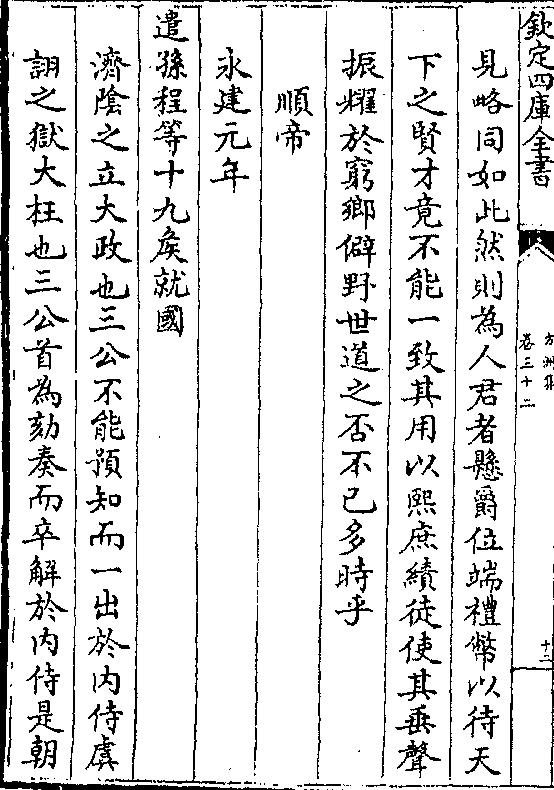 欽定四庫全書
方洲集
卷三十二
十三
見略同如此然則為人君者懸爵位端禮幣以待天
下之賢才竟不能一致其用以熙庶績徒使其垂聲
振耀於窮鄉僻野世道之否不已多時乎
順帝
永建元年
遣孫程等十九矦就國
濟陰之立大政也三公不能預知而一出於内侍虞
詡之獄大枉也三公首為劾奏而卒解於内侍是朝